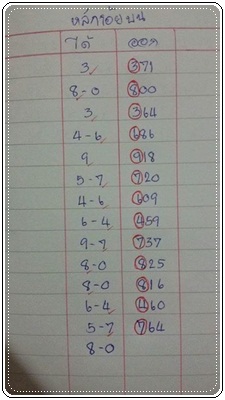 หลักร้อยบน
ได้ ออก
3 371
8-0 800
3 364
4-6 686
9 918
5-7 720
4-6 609
6-4 459
9-7 737
8-0 825
8-0 816
6-4 460
5-7 764
8-0